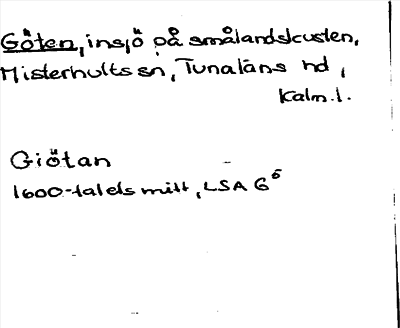 Göten, insjö på smålandskusten,
Misterhults sn, Tunaläns hd,
Kalm.l.
Giötan
1600-talets mitt, LSA G⁶